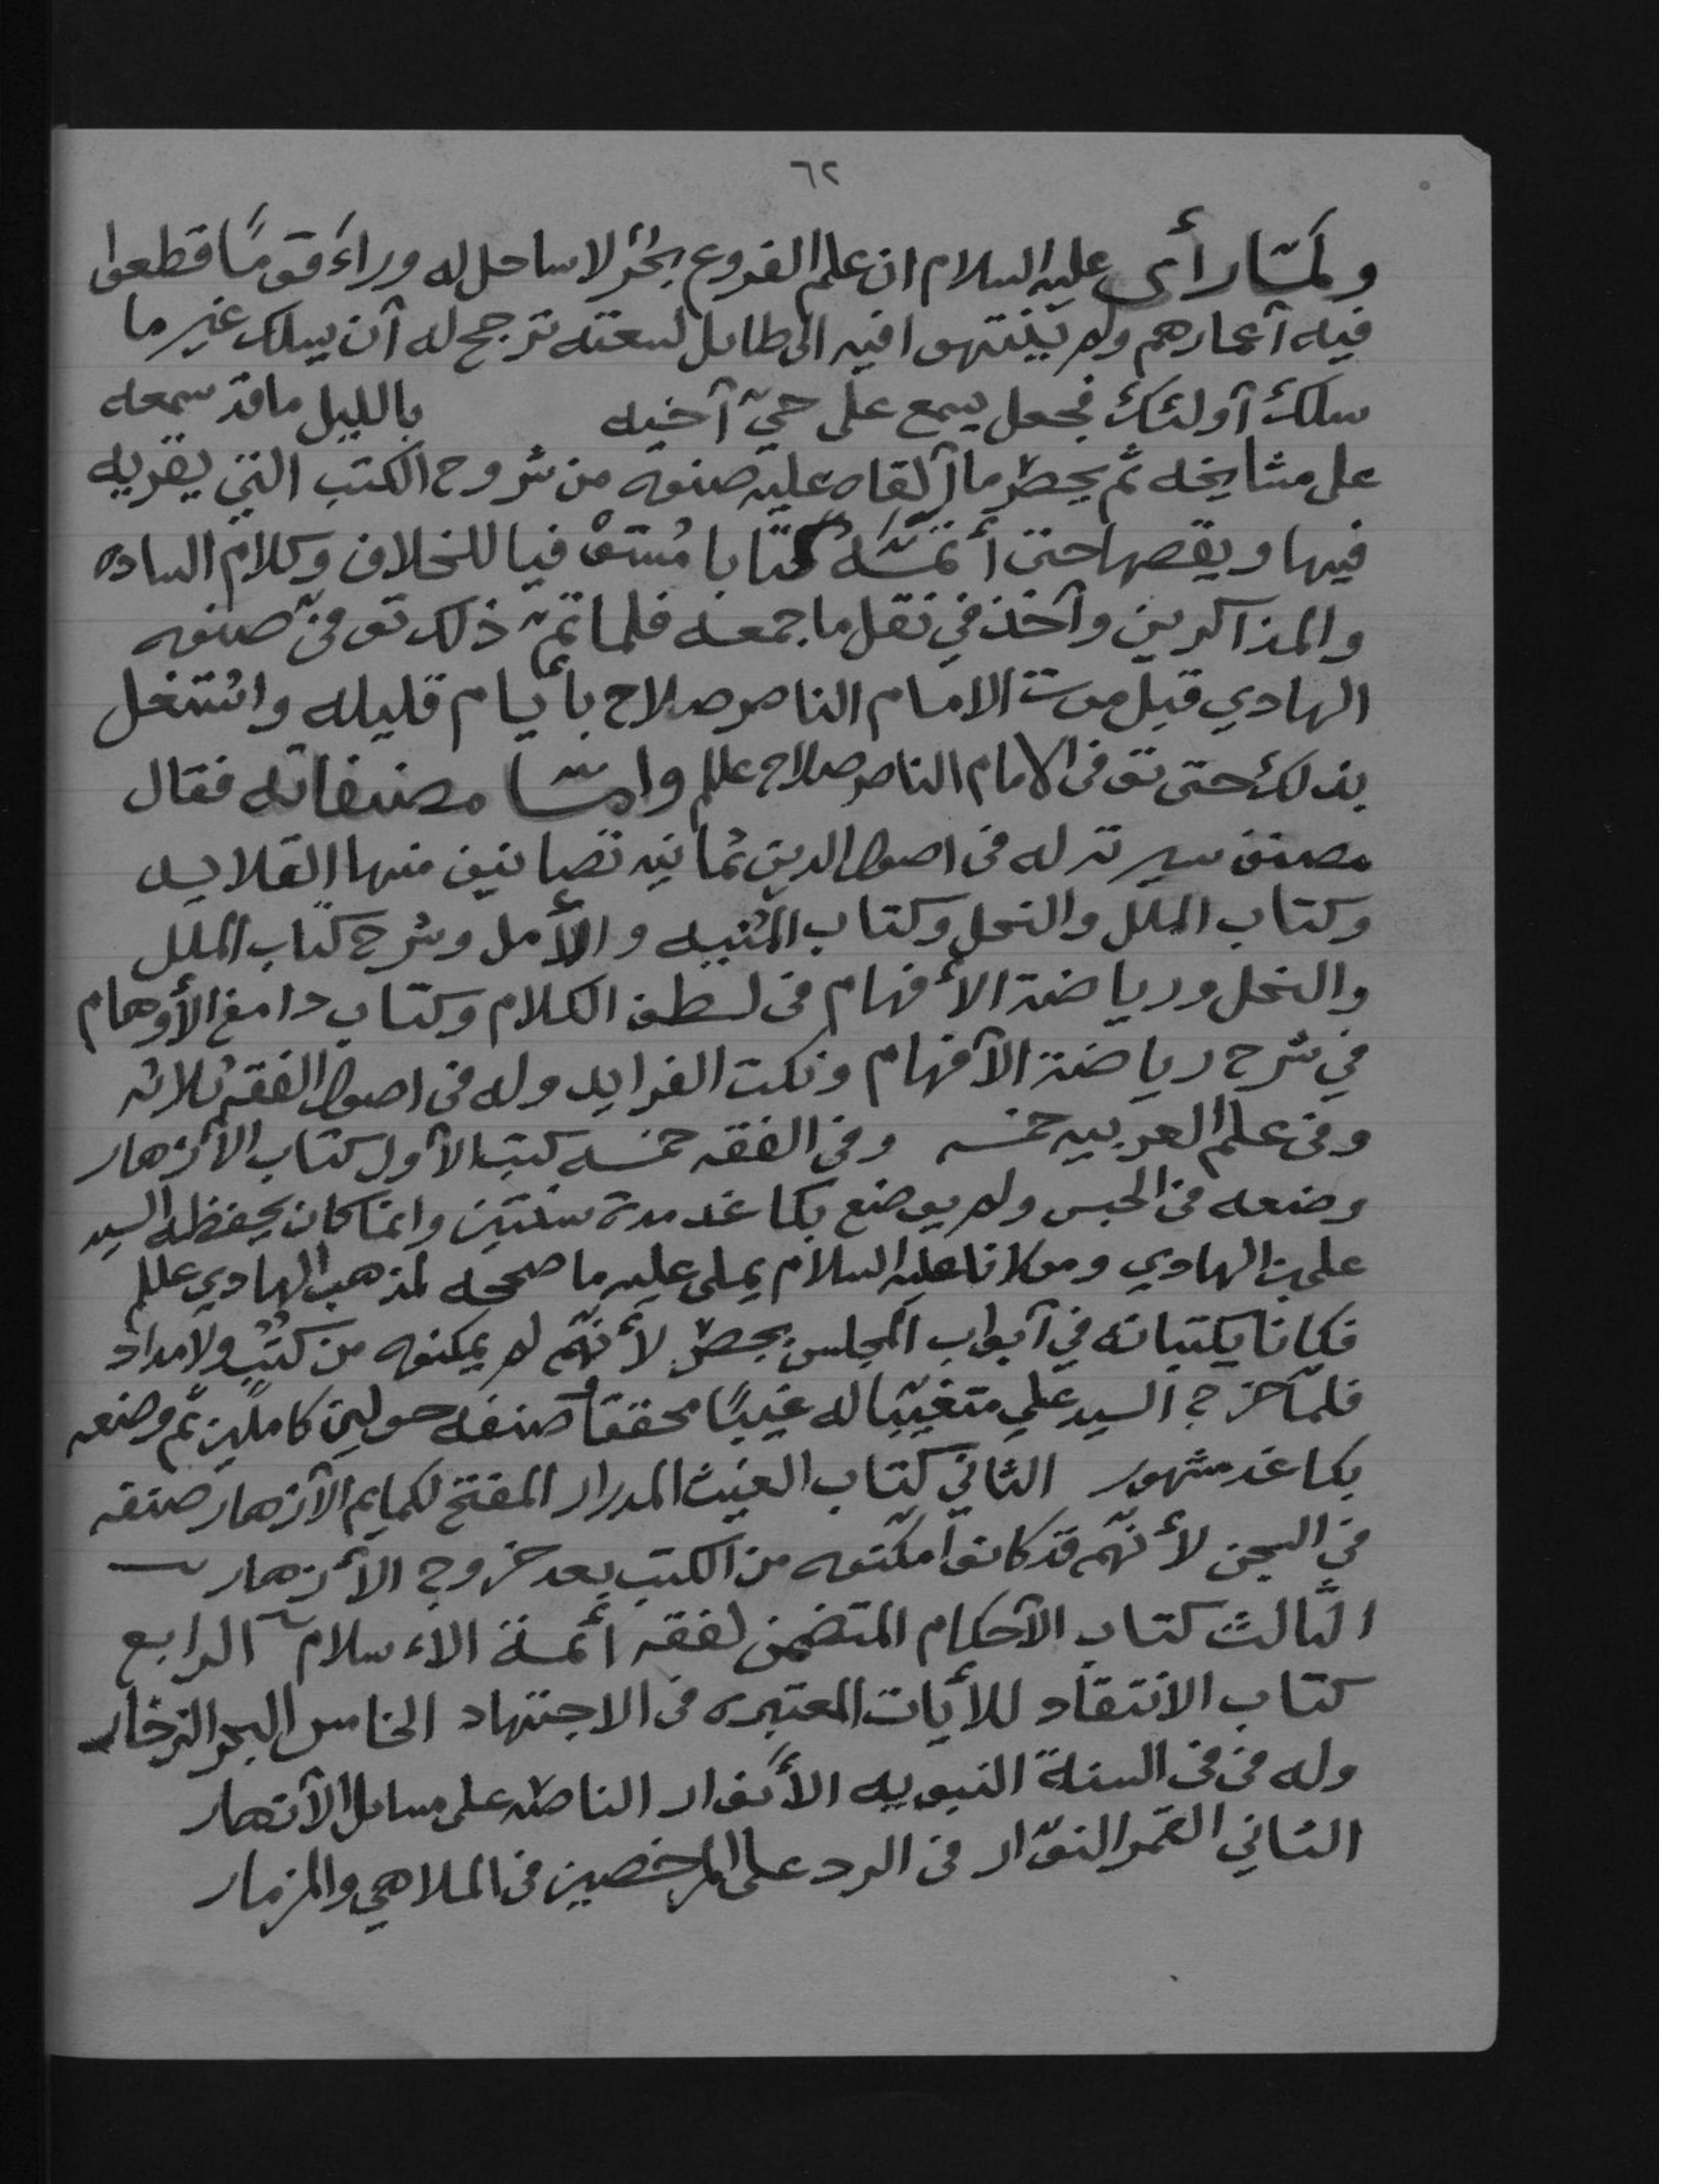 ٦٢
ولمّا رأى عليه السلام ان علم الفروع بحرٌ لا ساحل له وراءَ قومًا قطعوا
فيه أعمارهم ولم ينتهوا فيه الى طايل لسعته ترجح له أن يسلك غير ما
سلك أولئك فجعل يسمع على حيّ أخيه بالليل ما قد سمعه
على مشايخه ثم يحصر ما ألقاه عليه صنوه من شروح الكتب التي يقريه
فيها ويقصها حتى أتمّه كتابا مُستوْفيا للخلاف وكلام الساده
والمذاكرين وأخذ في نقل ما جمعه فلما تمّ ذلك توفىّ صنوه
الهادي قبل موت الامام الناصر صلاح بأيام قليله واشتغل
بذلك حتى توفى الامام الناصر صلاح عللم وامّا مصنفاته فقال
مصنف سيرته له في اصول الدين ثمانيه تصانيف منها القلايد
وكتاب الملل والنحل وكتاب المُنيه والأمل وشرح كتاب الملل
والنحل ورياضة الأفهام في لطف الكلام وكتاب دامغ الأوهام
في شرح رياضة الأفهام ونكت الفرايد وله في اصول الفقه ثلاثه
وفي علم العربيه خمسه وفي الفقه خمسه كتب الأول كتاب الأزهار
وضعه في الحبس ولم يوضع بكاغد مدة سنتين وانما كان يحفظه السيد
علي بن الهادي ومولانا عليه السلام يملي عليه ما صححه لمذهب الهادي عللم
فكانا يكتبانه في أبواب المجلس بجص لأنهّم لم يمكنوه من كُتُب ولا مداد
فلمّا خرج السيد علي متغيّبا له غيبًا محققا صنفه حولين كاملين ثم وضعه
بكاغد مشهور الثاني كتاب الغيث المدرار المفتح لكمايم الأزهار صنفه
في السجن لأنهّم قد كانوا مكنوه من الكتب بعد خروج الأزهار
الثالث كتاب الأحكام المتضمن لفقه أئمة الاءسلام الرابع
كتاب الانتقاد للأيات المعتبره في الاجتهاد الخامس البحر الزخار
وله في في السنة النبويه الأنوار الناصه على مسايل الأزهار
الثاني القمر النوّار في الرد على المرخصين في الملاهي والمزمار